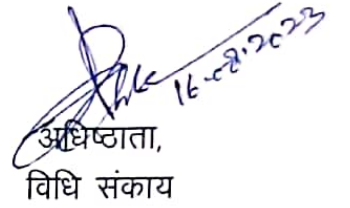 16.08.2023
अधिष्ठाता,
विधि संकाय